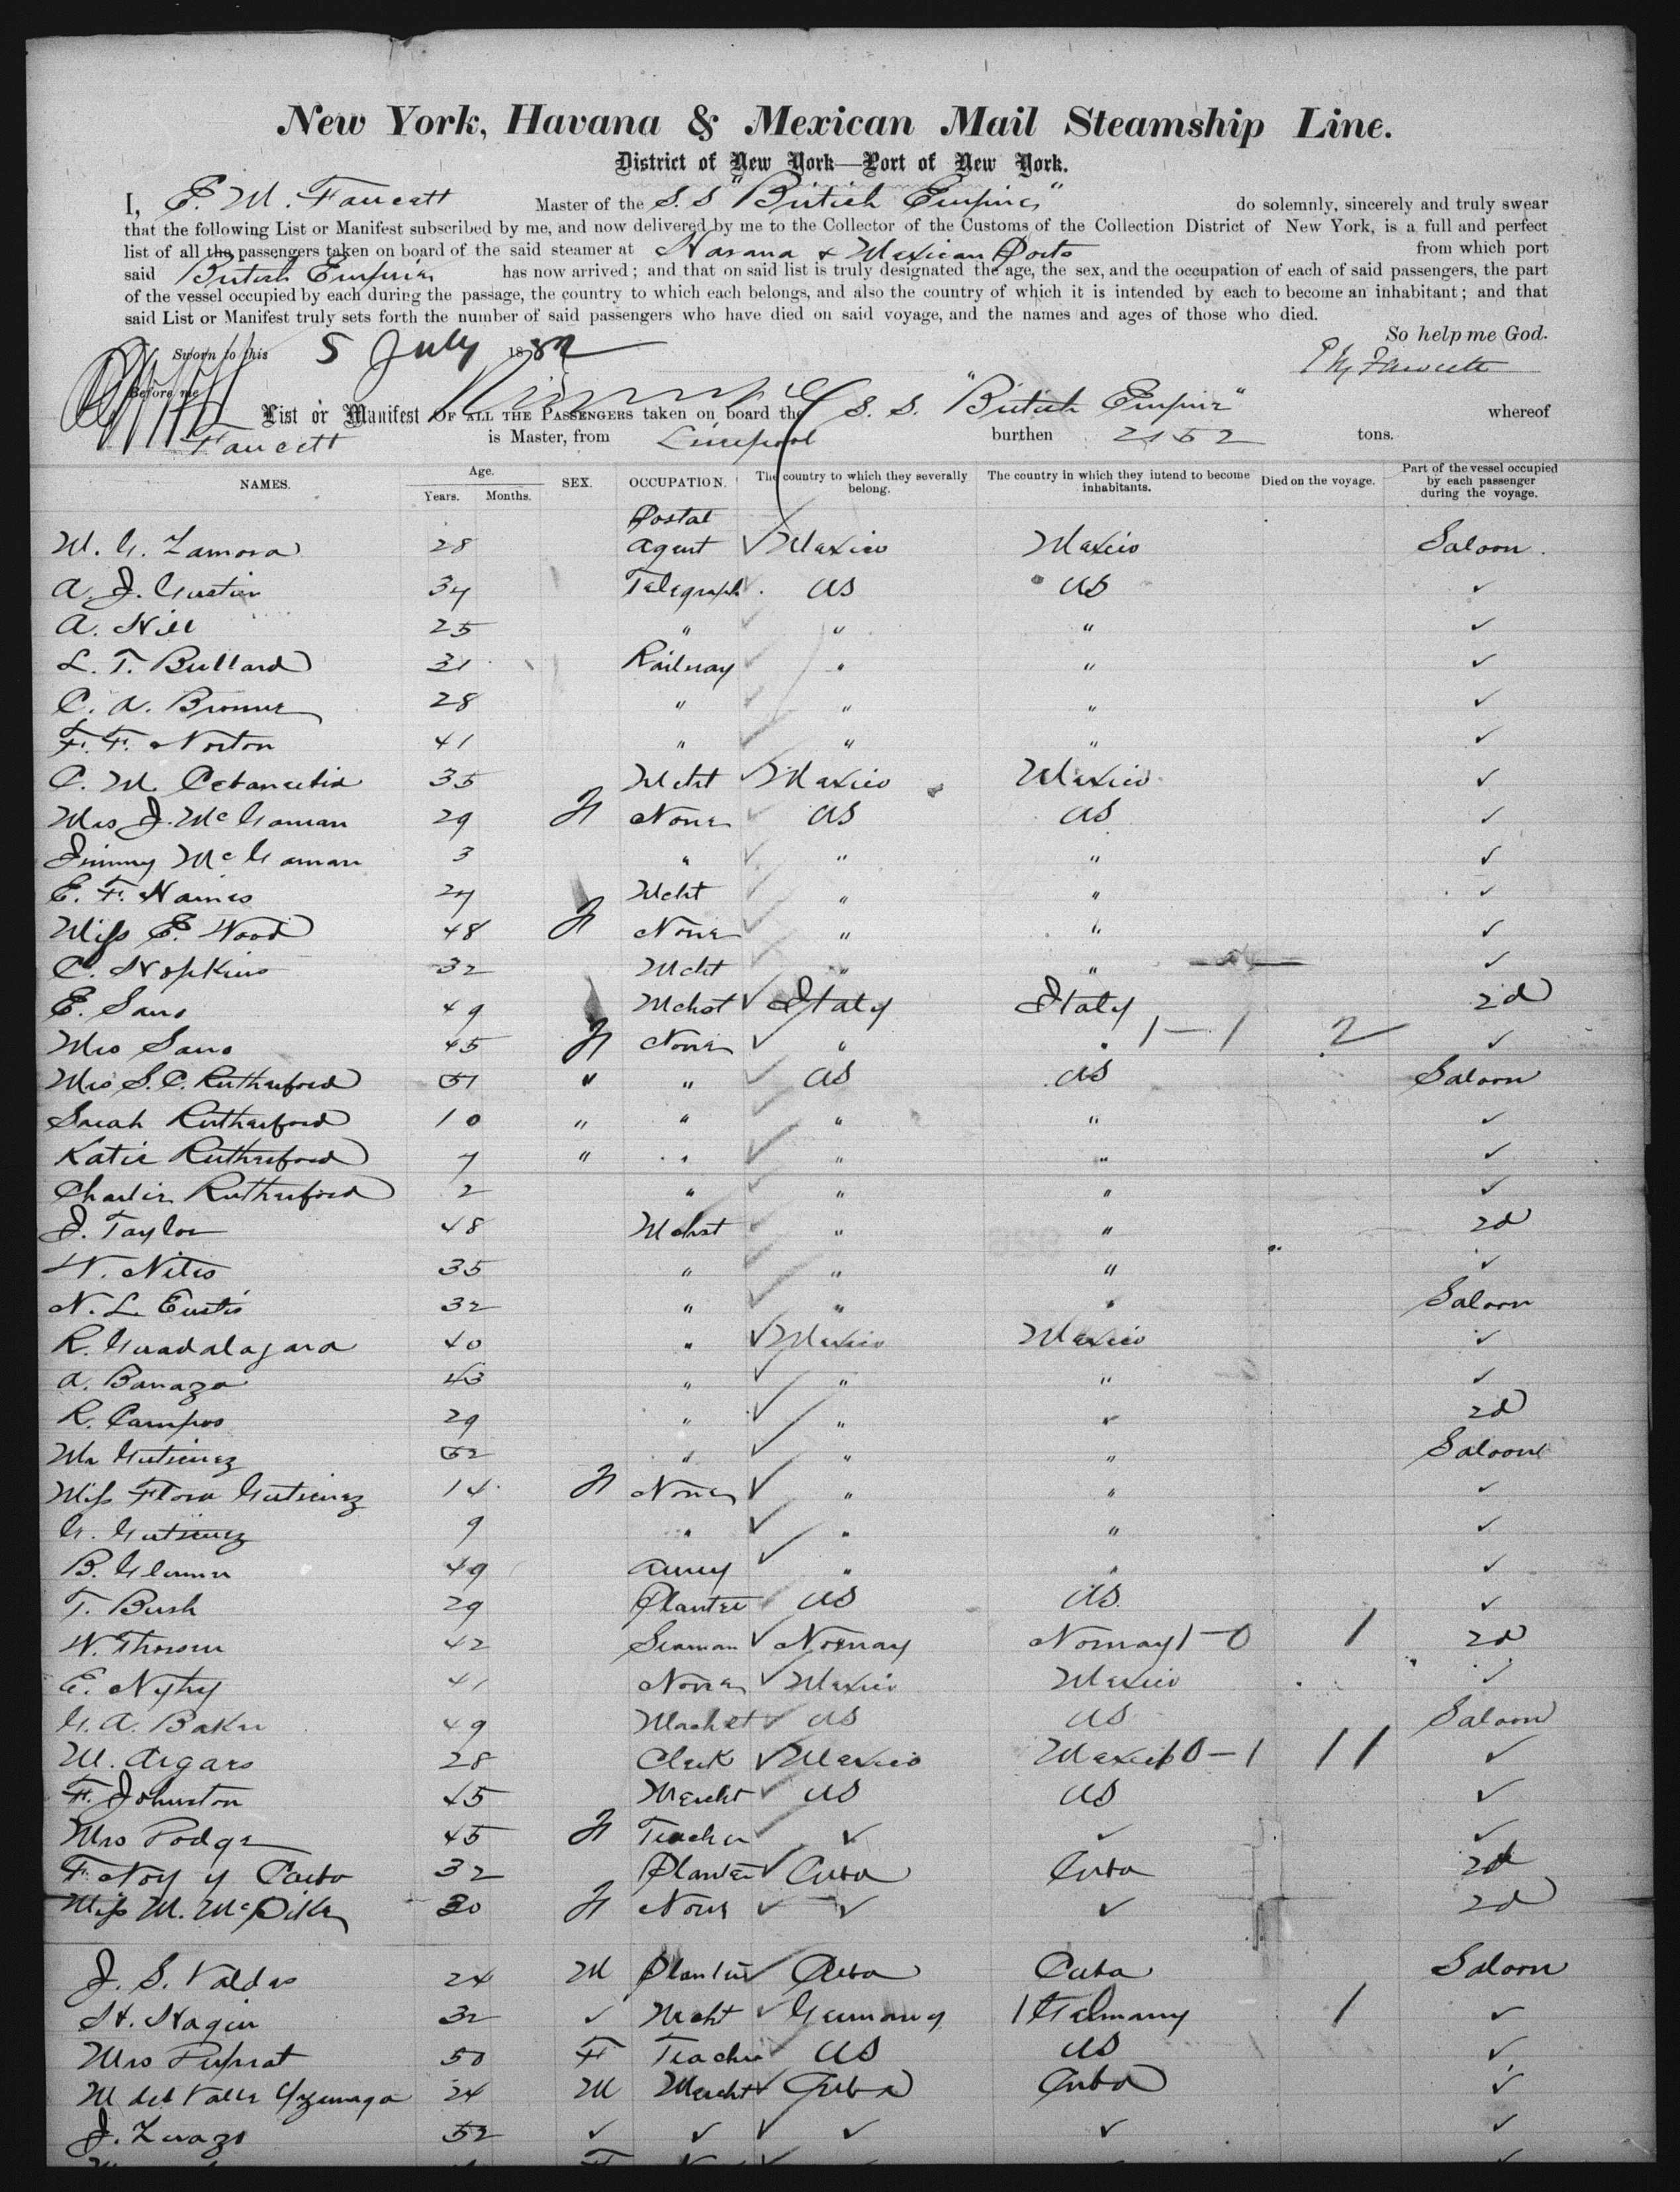 New York, Havana & Mexican Mail Steamship Line.
District of New York—Port of New York.
I, E. M. Faucett Master of the S.S "British Empire" do solemnly, sincerely and truly swear
that the following List or Manifest subscribed by me, and now delivered by me to the Collector of the Customs of the Collection District of New York, is a full and perfect
list of all the passengers taken on board of the said steamer at Havana & Mexican Ports from which port
said British Empire has now arrived; and that on said list is truly designated the age, the sex, and the occupation of each of said passengers, the part
of the vessel occupied by each during the passage, the country to which each belongs, and also the country of which it is intended by each to become an inhabitant; and that
said List or Manifest truly sets forth the number of said passengers who have died on said voyage, and the names and ages of those who died.
So help me God.
Sworn to this 5 July 1882
Before me
List or Manifest OF ALL THE PASSENGERS taken on board the S. S. "British Empire" whereof
Faucett is Master, from Liverpool burthen 2152 tons.
NAMES. Age. Years. Months. SEX. OCCUPATION. The country to which they severally belong. The country in which they intend to become inhabitants. Died on the voyage. Part of the vessel occupied by each passenger during the voyage.
Postal
M. G. Zamora 28 Agent ✓ Mexico Mexico Saloon
A. J. Gustin 34 Telegraph ✓ US US ✓
A. Hill 25 " ✓ " " ✓
L. T. Bullard 31 Railway ✓ " " ✓
C. A. Browne 28 " ✓ " " ✓
F. F. Norton 41 " ✓ " " ✓
C. M. 35 Mcht ✓ Mexico Mexico ✓
Mrs J. McGoman 29 F None ✓ US US ✓
Jimmy McGoman 3 " ✓ " " ✓
E. F. Haines 27 Mcht ✓ " " ✓
Miss E. Wood 48 F None ✓ " " ✓
C. Hopkins 32 Mcht ✓ " " ✓
E. Saus 49 Mchst ✓ Italy Italy 2d
Mrs Saus 45 F None ✓ " " 1-1 2 ✓
Mrs S. C. Rutherford 51 " " ✓ US US Saloon
Sarah Rutherford 10 " " ✓ " " ✓
Katie Rutherford 7 " " ✓ " " ✓
Charlie Rutherford 2 " ✓ " " ✓
J. Taylor 48 Mchst ✓ " " 2d
W. Niles 35 " ✓ " " ✓
N. L. Eustis 32 " ✓ " " Saloon
R. Guadalajara 40 " ✓ Mexico Mexico ✓
A. Banazo 43 " ✓ " " ✓
R. Campos 29 " ✓ " " 2d
Mr Gutierrez 52 " ✓ " " Saloon
Miss Flora Gutierrez 14 F None ✓ " " ✓
G. Gutierrez 9 " ✓ " " ✓
B. 49 Army ✓ " " ✓
T. Bush 29 Planter ✓ US US ✓
W. Thorsen 42 Seaman ✓ Norway Norway 1-0 1 2d
E. 41 None ✓ Mexico Mexico ✓
G. A. Baker 49 Machst ✓ US US Saloon
M. Aigars 28 Clerk ✓ Mexico Mexico 10-1 11 ✓
F. Johnston 45 Mercht ✓ US US ✓
Mrs Podge 45 F Teacher ✓ ✓ ✓
F. Noy y 32 Planter ✓ Cuba Cuba 2d
Miss M. McPike 30 F None ✓ ✓ ✓ 2d
J. S. Valdes 24 M Planter ✓ Cuba Cuba Saloon
H. Hagin 32 ✓ Mcht ✓ Germany 1 Germany 1 ✓
Mrs 50 F Teacher US US ✓
M del Valle Yznaga 24 M Mercht ✓ Cuba Cuba ✓
J. Zuazo 52 ✓ ✓ ✓ ✓ ✓ ✓